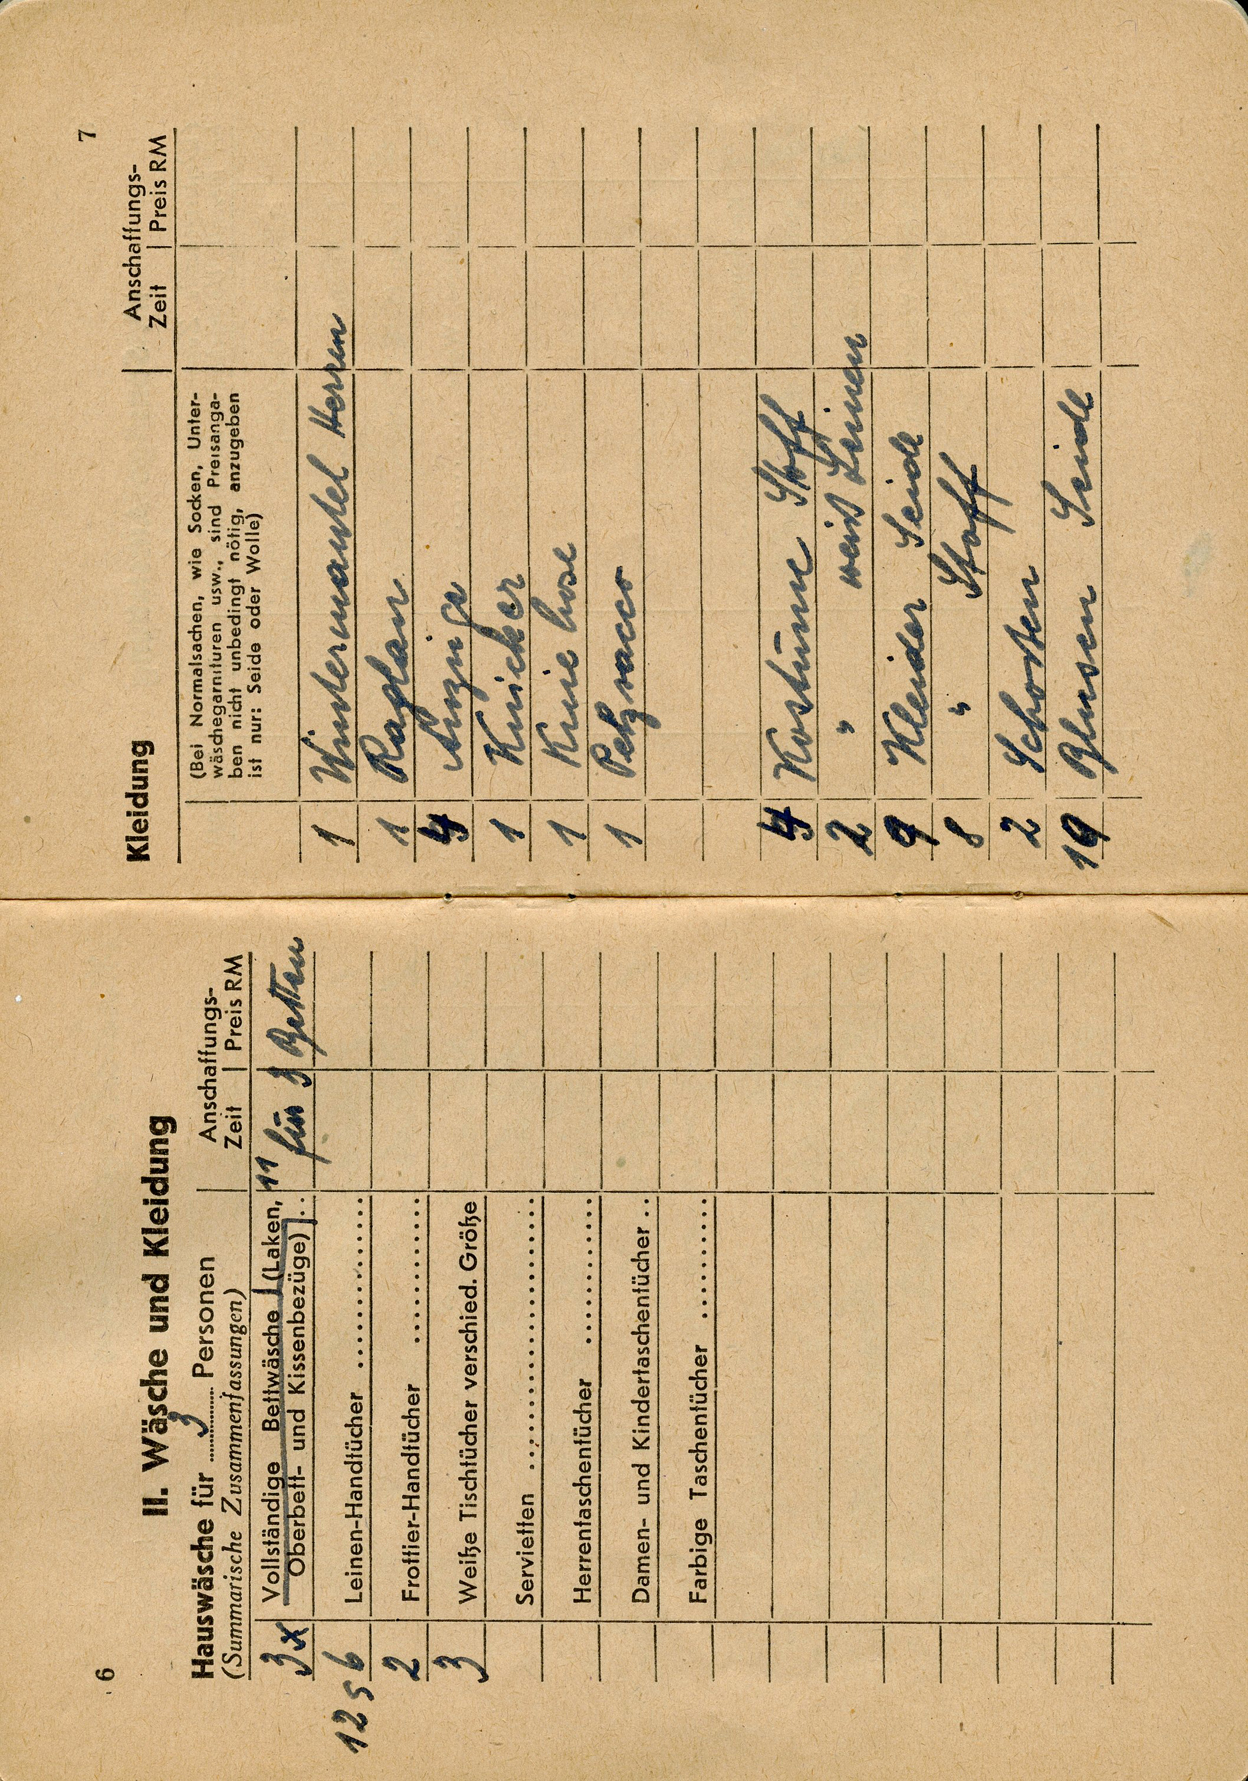 6
II. Wäsche und Kleidung
Hauswäsche für 3 Personen
(Summarische Zusammenfassungen)
Anschaffungs-
Zeit | Preis RM
3x Vollständige Bettwäsche (Laken, "
Oberbett- und Kissenbezüge) .. für 3 Betten
12 5 6 Leinen-Handtücher ............
2 Frottier-Handtücher ...........
3 Weiße Tischtücher verschied. Größe
Servietten ........................
Herrentaschentücher ............
Damen- und Kindertaschentücher ..
Farbige Taschentücher ..........
7
Kleidung
Anschaffungs-
Zeit | Preis RM
(Bei Normalsachen, wie Socken, Unter-
wäschegarnituren usw., sind Preisanga-
ben nicht unbedingt nötig, anzugeben
ist nur: Seide oder Wolle)
1 Wintermantel Herren
1 Raglan
4 Anzüge
1 Knicker
1 Kniehose
1
4 Kostüme Stoff
2 " weiß Leinen
9 Kleider Seide
8 " Stoff
2
19 Blusen Seide